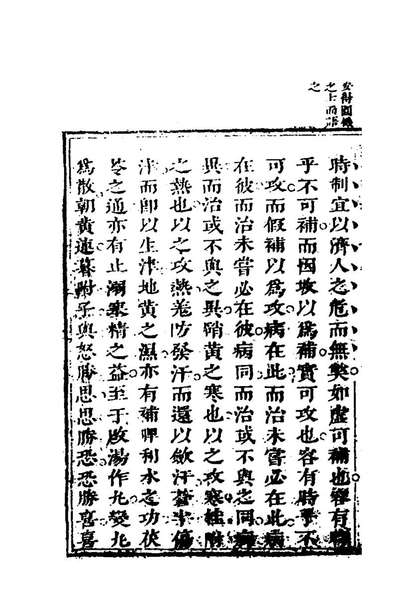 安得圓機
之士而語
之
時制宜以濟人之危而無弊如虛可補也容有時
乎不可補而因攻以爲補實可攻也容有時乎不
可攻而假補以爲攻病在此而治未嘗必在此病
在彼而治未嘗必在彼病同而治或不與之同病
異而治或不與之異硝黃之寒也以之攻寒桂
之熱也以之攻熱卷防發汗而還以斂汗苓半傷
津而卽以生津地黃之濕亦有補脾利水之功茯
苓之通亦有止溺寒精之益至于改湯作丸變丸
爲散朝黃連暮附子與怒勝思思勝恐恐勝喜喜